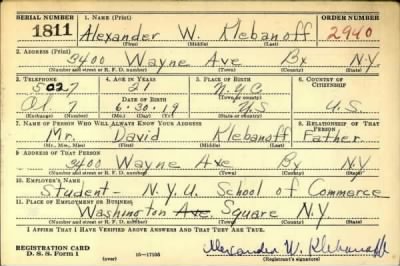 SERIAL NUMBER 1. NAME (Print) ORDER NUMBER
1811 Alexander W. Klebanoff 2940
(First) (Middle) (Last)
2. ADDRESS (Print)
3400 Wayne Ave Bx N.Y.
(Number and street or R. F. D. number) (Town) (County) (State)
3. TELEPHONE 4. AGE IN YEARS 5. PLACE OF BIRTH 6. COUNTRY OF CITIZENSHIP
5027 21 N.Y.C.
DATE OF BIRTH
Ol. 7 6-30-19 U.S U.S.
(Exchange) (Number) (Mo.) (Day) (Yr.) (State or country)
7. NAME OF PERSON WHO WILL ALWAYS KNOW YOUR ADDRESS 8. RELATIONSHIP OF THAT PERSON
Mr. David Klebanoff Father
(Mr., Mrs., Miss) (First) (Middle) (Last)
9. ADDRESS OF THAT PERSON
3400 Wayne Ave Bx N.Y
(Number and street or R. F. D. number) (Town) (County) (State)
10. EMPLOYER'S NAME
Student - N.Y.U. School of Commerce
11. PLACE OF EMPLOYMENT OR BUSINESS
Washington Ave Square N.Y.
(Number and street or R. F. D. number) (Town) (County) (State)
I AFFIRM THAT I HAVE VERIFIED ABOVE ANSWERS AND THAT THEY ARE TRUE.
REGISTRATION CARD
D. S. S. Form 1 16-17105 Alexander W. Klebanoff
(Registrant's signature)